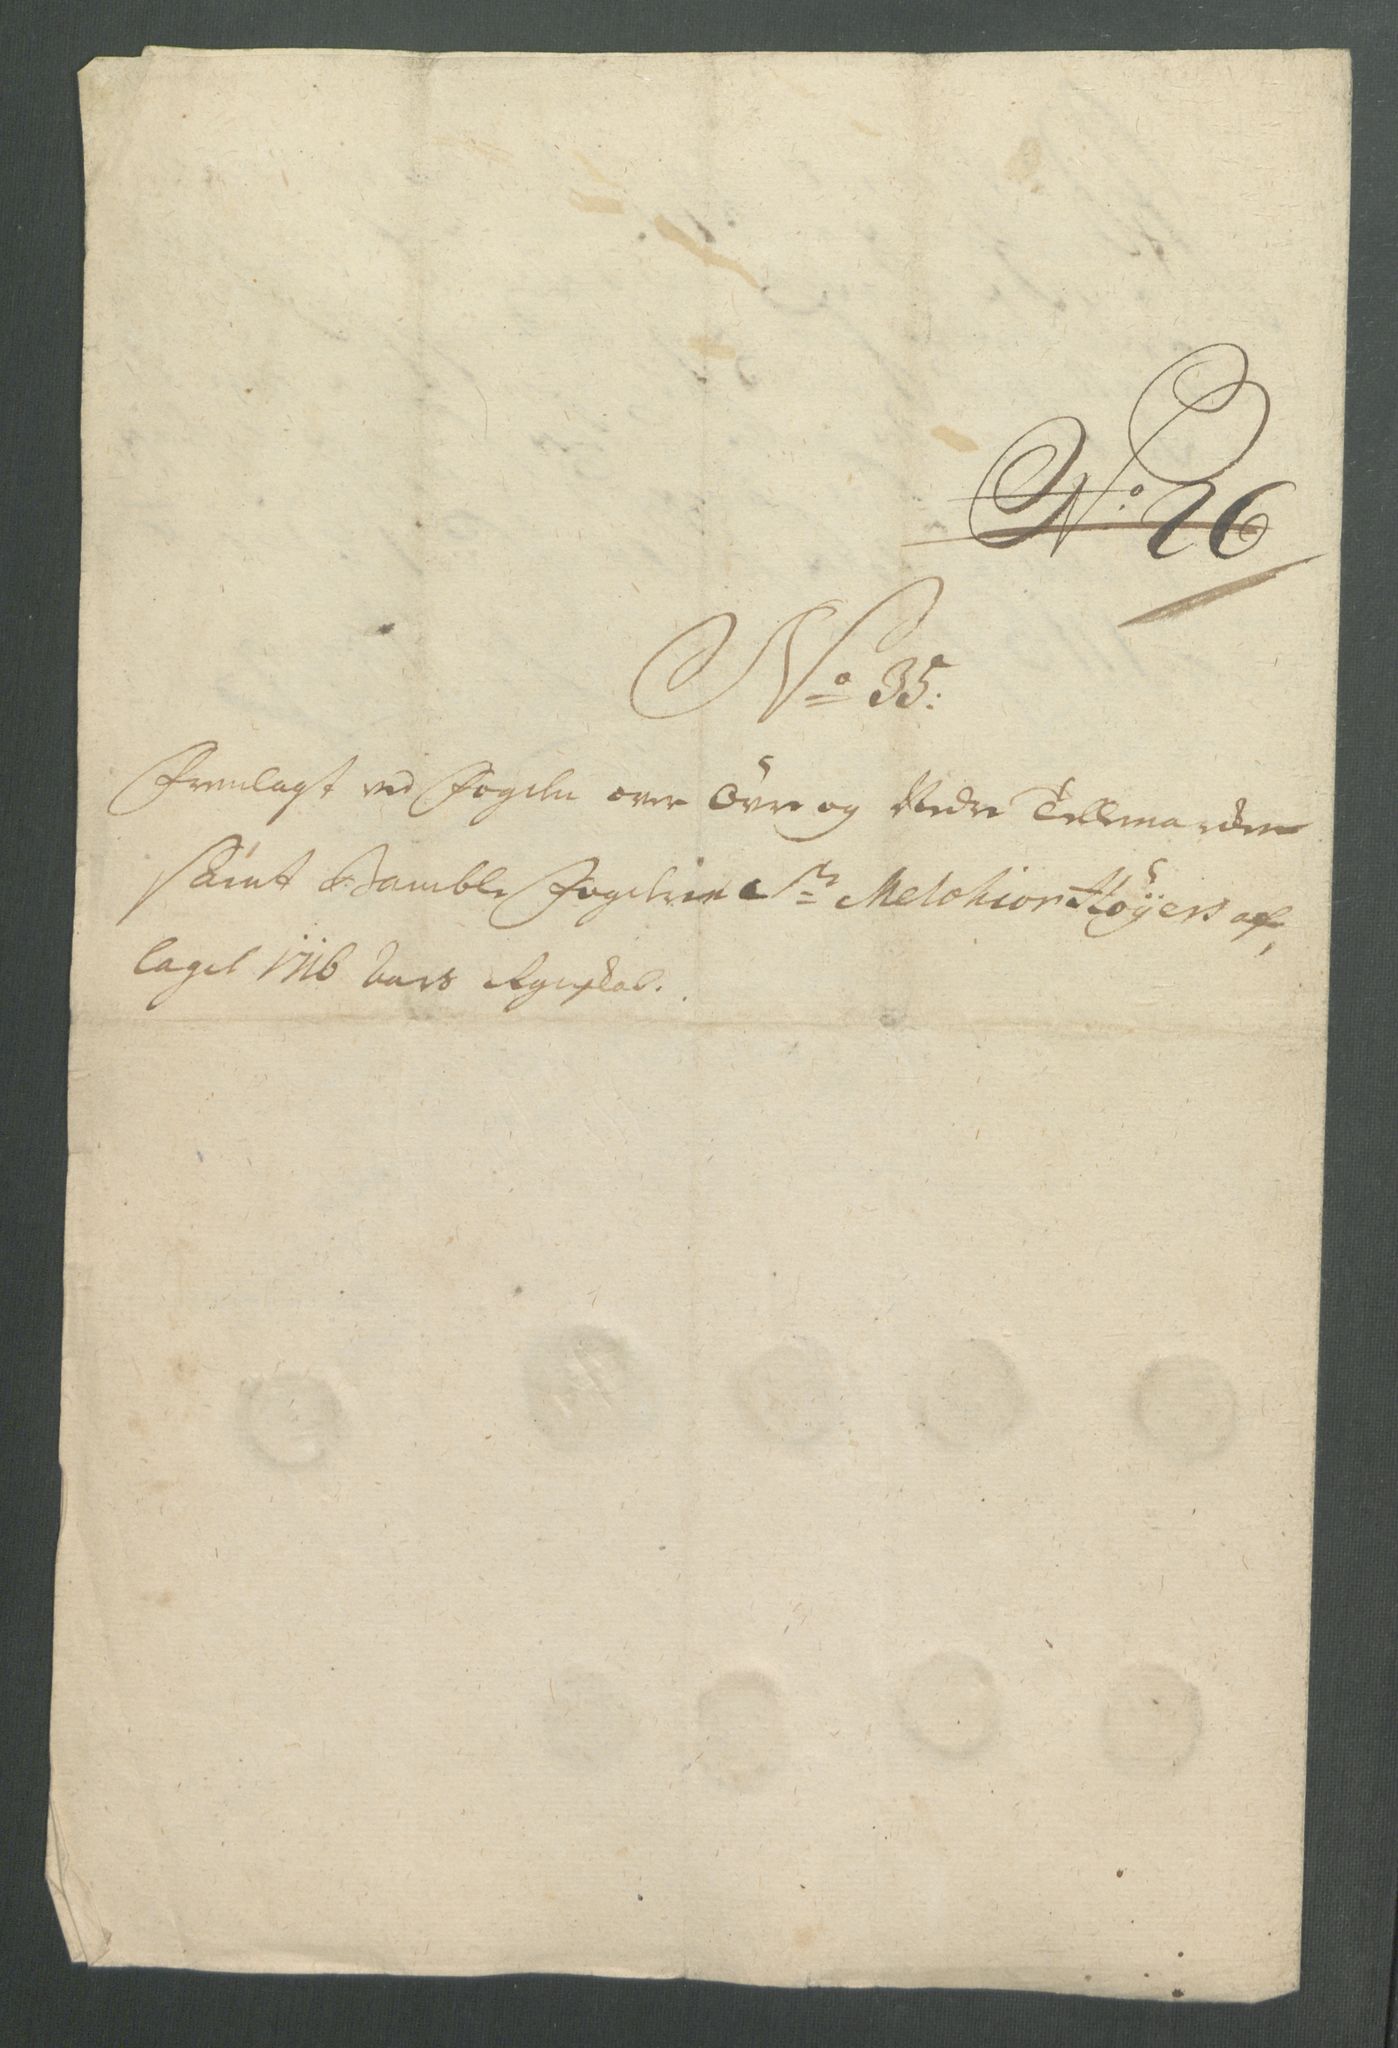 No 26
No 35:
Fremlagt ved Fogden over Øvre og Nedre Tellemarchen
samt Bamble Fogderie Sr Melchior Høyers af,
lagde 1716 Aars Regnskab.